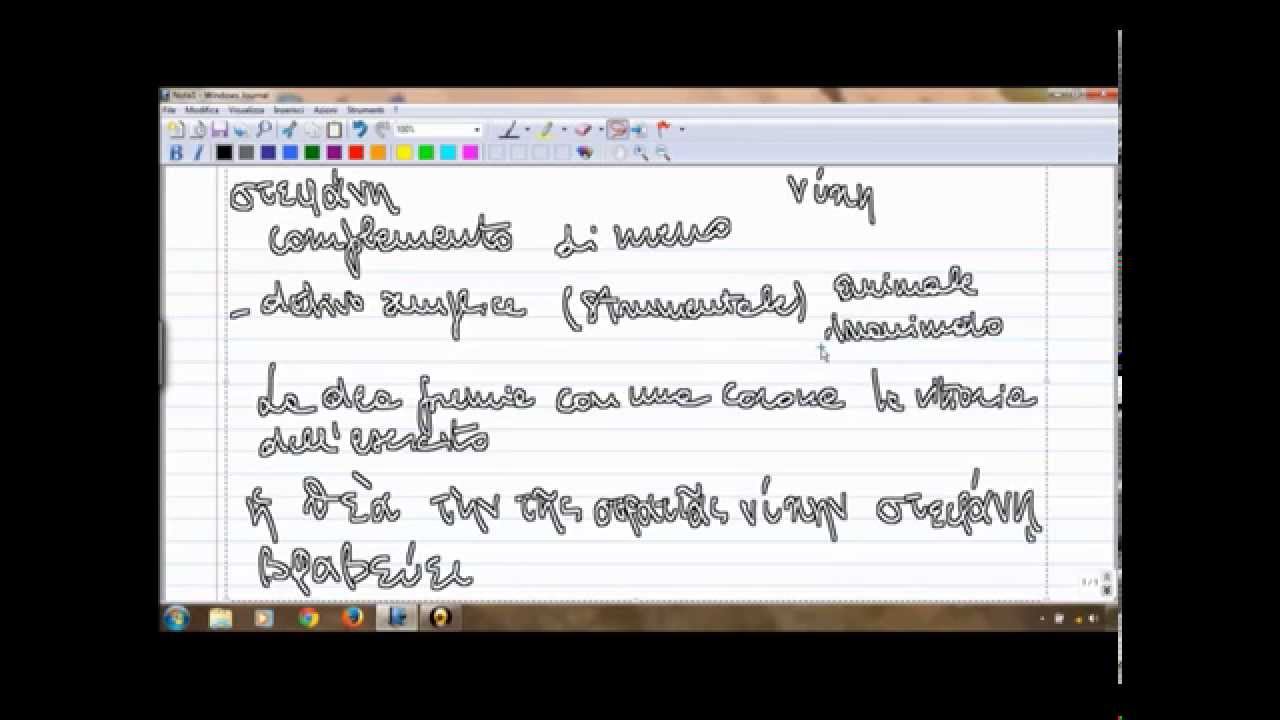 Note1 - Windows Journal
File Modifica Visualizza Inserisci Azioni Strumenti ?
100%
στεφάνη νίκη
complemento di mezzo
- dativo semplice (strumentale) animale
inanimato
La dea premia con una corona la vittoria
dell'esercito
ἡ θεὰ τὴν τῆς στρατιᾶς νίκην στεφάνῃ
βραβεύει
1 / 1